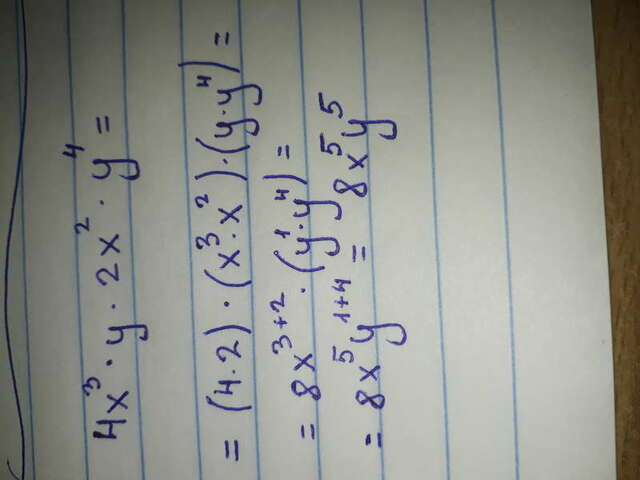 4x³ · y · 2x² · y⁴ =
= (4·2) · (x³·x²) · (y·y⁴) =
= 8x³⁺² · (y¹·y⁴) =
= 8x⁵y¹⁺⁴ = 8x⁵y⁵